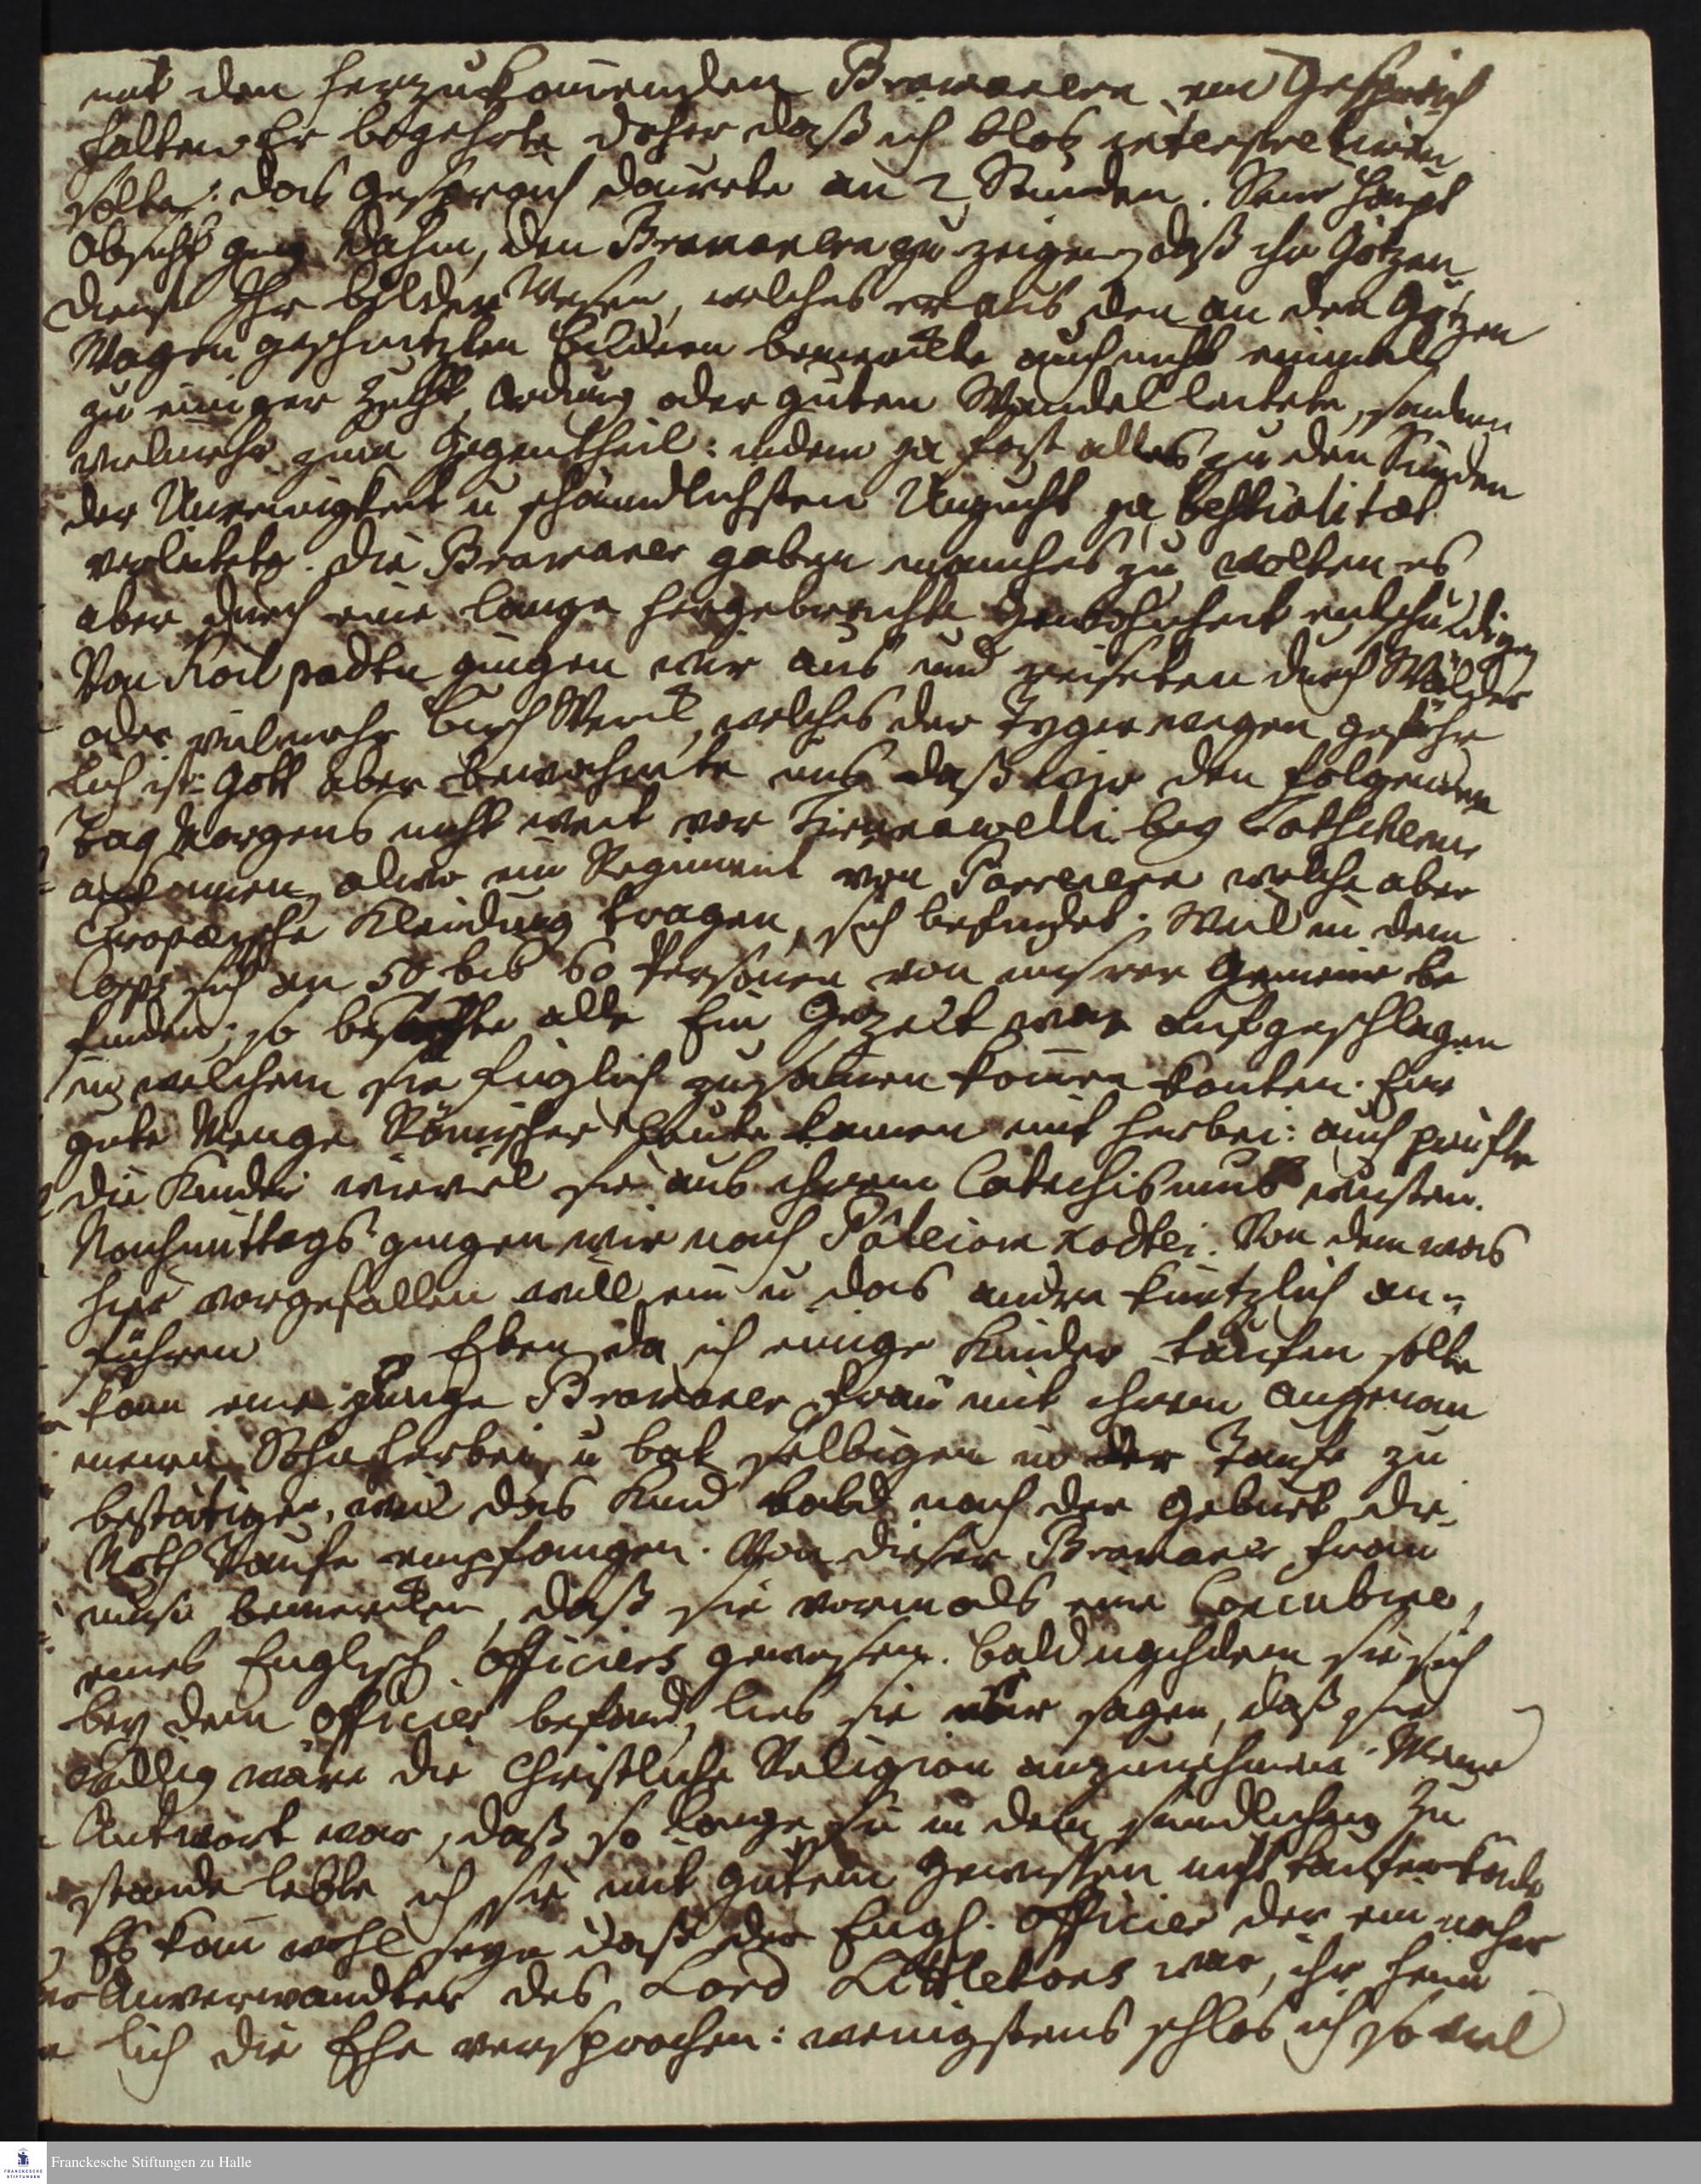 mit den herzukom̅enden Bramanern ein Gespräch
halten. Er begehrte daher daß ich blos interpretiren
solte: das Gespräch daurete an 2 Stunden. Seine Haupt
Absicht ging dahin, den Bramanern zu zeigen, daß ihr Götzen
dienst Ihr bilder Wesen, welches er aus den an den Götzen
Wagen geschnitzten Bildern bemerckte auch nicht einmal
zu einiger Zucht, Ordnung oder guten Wandel leitete, sondern
vielmehr zum Gegentheil: indem ja fast alles zu den Sünden
der Unreinigkeit u schändlichsten Unzucht ja bestialitæt
verleitete. Die Bramaner gaben manches zu, wolten es
aber durch eine lange hergebrachte Gewohnheit entschuldigen
Von Koil padtu gingen wir aus und reiseten durch Wälder
oder vielmehr Busch Werck, welches der Tyger wegen gefähr
lich ist: Gott aber bewahrete uns daß wir den folgenden
Tag Morgens nicht weit vor Tirunawelli bey
ankamen, alwo ein Regiment von welche aber
Europæische Kleidung tragen, sich befindet; Weil in dem
Corps sich an 50 bis 60 Personen von unsrer Gemeine be
finden; so besuchte alle Ein Gezelt war aufgeschlagen
in welchem sie füglich zusam̅en kom̅en konten. Eine
gute Menge Römischer Leute kamen mit herbei: auch prüfte
die Kinder wieviel sie aus ihrem Catechismus wusten.
Nachmittags gingen wir nach Pâleiam kodtei. Von dem was
hier vorgefallen will ein u das andre kürtzlich an=
führen Eben da ich einige Kinder taufen solte
kam eine junge Bramaner Frau mit ihrem angenom
menen Sohn herbei, u bat selbigen in der Taufe zu
bestätigen, weil das Kind bald nach der Geburt die
Noth Taufe empfangen. Von dieser Bramaner Frau
muß bemercken, daß sie vormals eine Concubine,
eines Englisch Officiers gewesen. Bald nachdem sie sich
bey dem Officier befand, lies sie mir sagen, daß sie
willig wäre die Christliche Religion anzunehmen. Meine
Antwort war, daß so lange sie in dem sündlichen Zu
stande lebte ich sie mit gutem Gewissen nicht taufen könte
Es kan̅ wohl seyn daß der Engl. Officier der ein naher
Anverwandter des Lord Littletons war, ihr heim
lich die Ehe versprochen: wenigstens schlos ich so viel
Franckesche Stiftungen zu Halle